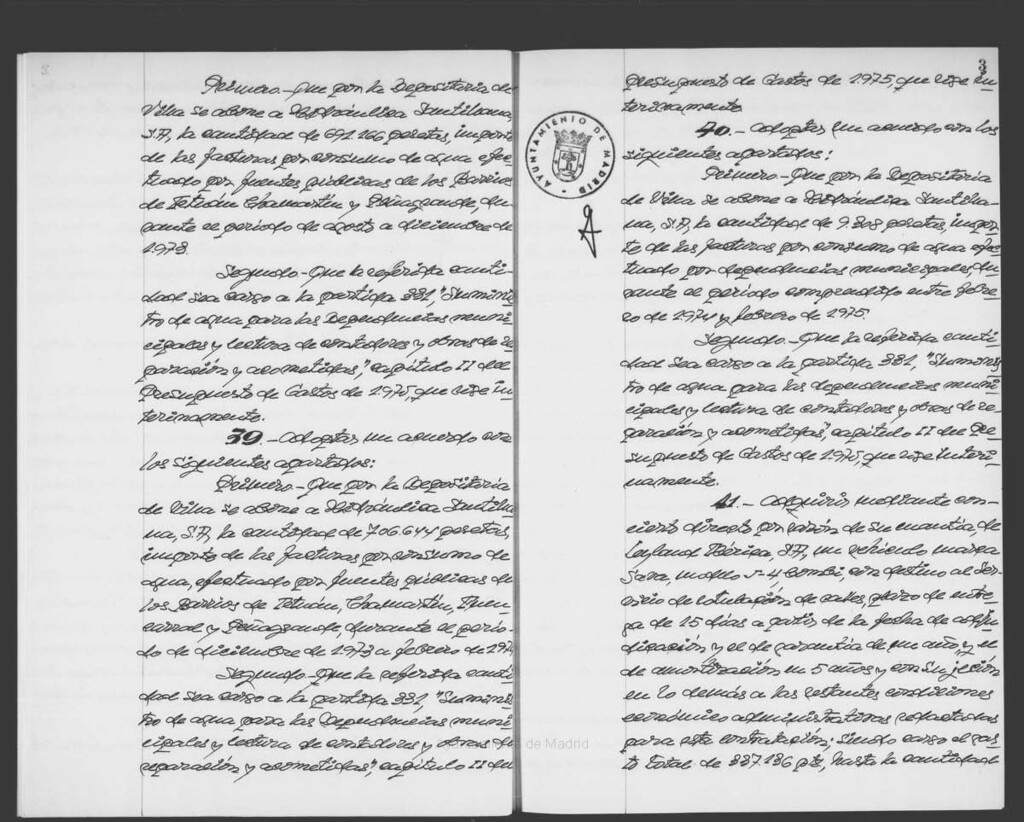 Primero.- Que por la Depositaría de
Villa se abone a Hidráulica Santillana,
S.A., la cantidad de 691.166 pesetas, importe
de las facturas por consumo de agua efec-
tuado por fuentes públicas de los Barrios
de Tetuán, Chamartín y Peñagrande, du-
rante el período de agosto a diciembre de
1973.
Segundo.- Que la referida canti-
dad sea cargo a la partida 381, "Suminis
tro de agua para las Dependencias muni
cipales y lectura de contadores y obras de re
paración y acometidas", capítulo II del
Presupuesto de Gastos de 1.975, que rige in
terinamente.
39.- Adoptar un acuerdo con
los siguientes apartados:
Primero.- Que por la Depositaría
de Villa se abone a Hidráulica Santilla
na, S.A., la cantidad de 706.644 pesetas,
importe de las facturas por consumo de
agua, efectuado por fuentes públicas de
los Barrios de Tetuán, Chamartín, Fuen
carral y Peñagrande, durante el perío-
do de diciembre de 1973 a febrero de 1974
Segundo.- Que la referida canti
dad sea cargo a la partida 381, "Suminis
tro de agua para las Dependencias muni
cipales y lectura de contadores y obras de
reparación y acometidas", capítulo II del
3
Presupuesto de Gastos de 1.975, que rige in
terinamente.
AYUNTAMIENTO DE MADRID
40.- Adoptar un acuerdo con los
siguientes apartados:
Primero.- Que por la Depositaría
de Villa se abone a Hidráulica Santilla-
na, S.A., la cantidad de 9.808 pesetas, impor
te de las facturas por consumo de agua efec
tuado por dependencias municipales, du
rante el período comprendido entre febre
ro de 1974 y febrero de 1975.
Segundo.- Que la referida canti
dad sea cargo a la partida 381, "Suminis
tro de agua para las dependencias muni
cipales y lectura de contadores y obras de re-
paración y acometidas", capítulo II del Pre
supuesto de Gastos de 1.975, que rige interi
namente.
41.- Adquirir mediante con-
cierto directo por razón de su cuantía, de
Leyland Ibérica, S.A., un vehículo marca
Sava, modelo J-4 Combi, con destino al Ser-
vicio de rotulación de calles, plazo de entre
ga de 15 días a partir de la fecha de adju
dicación y el de garantía de un año, y el
de amortización en 5 años y con sujeción
en lo demás a las restantes condiciones
económico administrativas redactadas
para esta contratación; siendo cargo el gas
to total de 227.186 pts, hasta la cantidad
de Madrid